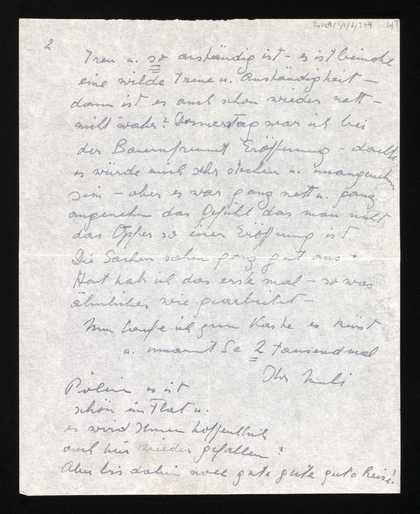 2
Treu u. so anständig ist - es ist beinahe
eine wilde Treue u. Anständigkeit -
dann ist es auch schon wieder nett -
nicht wahr? Donnerstag war ich bei
der Eröffnung - dachte
es würde mich sehr stechen u. unangenehm
sein - aber es war ganz nett u. ganz
angenehm das Gefühl das man nicht
das Opfer so einer Eröffnung ist
Die Sachen sahen ganz gut aus.
hab ich das erste mal - so was
ähnliches wie gearbeitet -
Nun laufe ich zum es
u. umarmt Sie 2 tausendmal
Ihr
es ist
schön im u.
es wird Ihnen hoffentlich
auch hier wieder gefallen!
Aber bis dahin noch gute gute gute Reise!